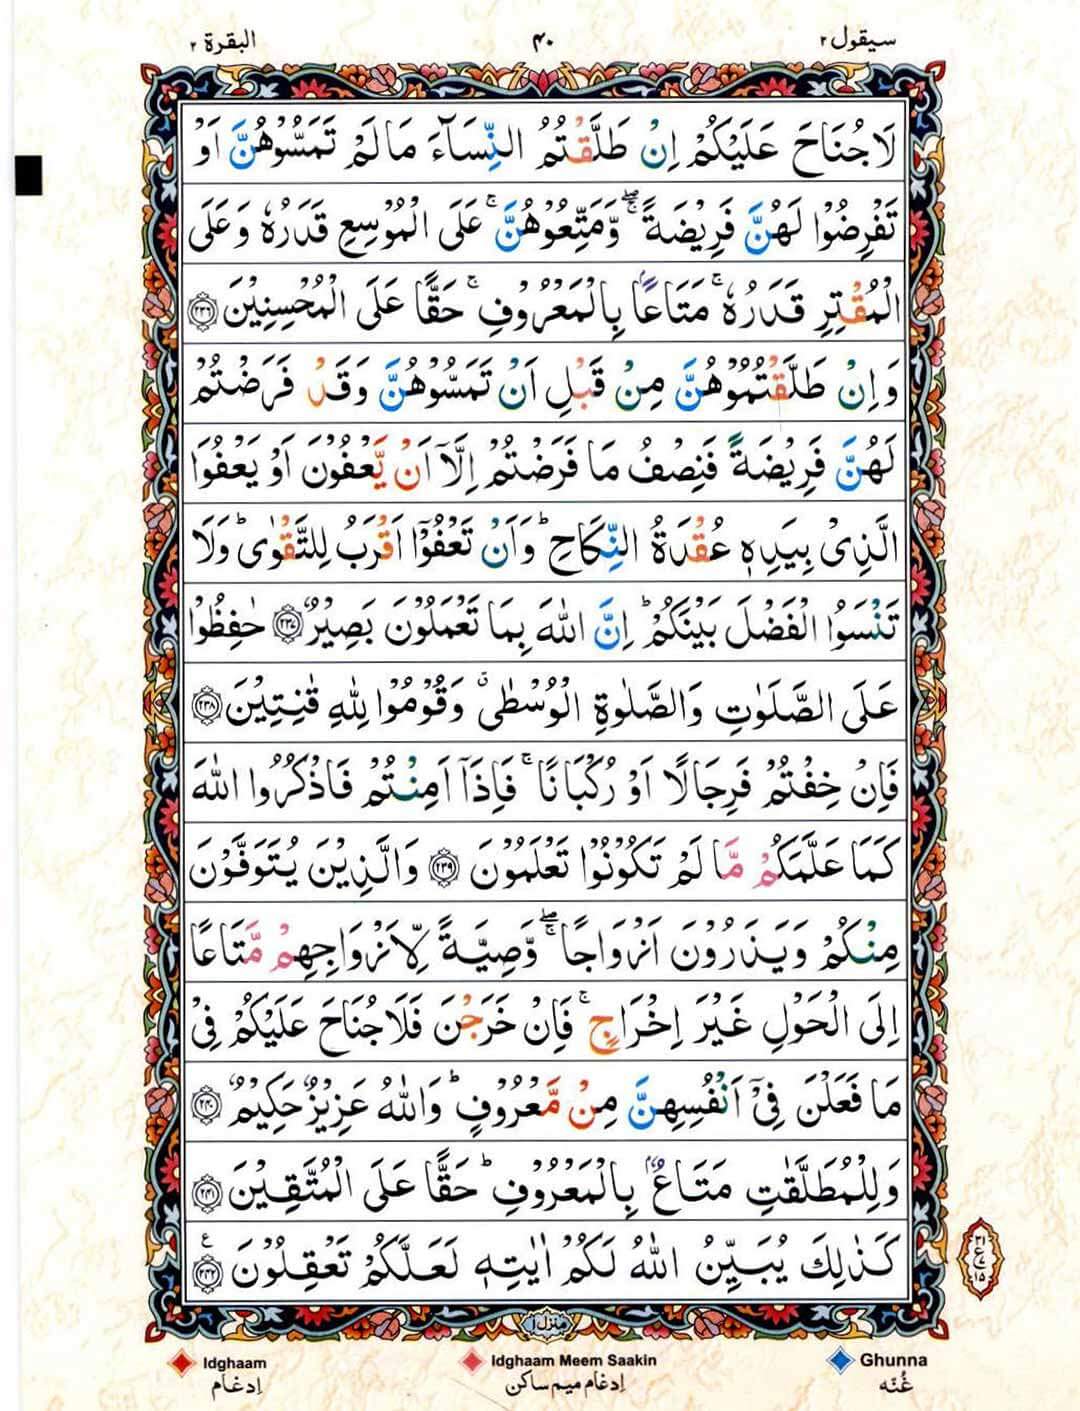 سيقول ٢ ۴۰ البقرة ٢
لَا جُنَاحَ عَلَيْكُمْ اِنْ طَلَّقْتُمُ النِّسَآءَ مَا لَمْ تَمَسُّوْهُنَّ اَوْ
تَفْرِضُوْا لَهُنَّ فَرِيْضَةً ۖۚ وَّمَتِّعُوْهُنَّ ۚ عَلَى الْمُوْسِعِ قَدَرُهٗ وَعَلَى
الْمُقْتِرِ قَدَرُهٗ ۚ مَتَاعًا بِالْمَعْرُوْفِ ۚ حَقًّا عَلَى الْمُحْسِنِيْنَ ﴿۲۳۶﴾
وَاِنْ طَلَّقْتُمُوْهُنَّ مِنْ قَبْلِ اَنْ تَمَسُّوْهُنَّ وَقَدْ فَرَضْتُمْ
لَهُنَّ فَرِيْضَةً فَنِصْفُ مَا فَرَضْتُمْ اِلَّآ اَنْ يَّعْفُوْنَ اَوْ يَعْفُوَا
الَّذِيْ بِيَدِهٖ عُقْدَةُ النِّكَاحِ ؕ وَاَنْ تَعْفُوْٓا اَقْرَبُ لِلتَّقْوٰى ؕ وَلَا
تَنْسَوُا الْفَضْلَ بَيْنَكُمْ ؕ اِنَّ اللّٰهَ بِمَا تَعْمَلُوْنَ بَصِيْرٌ ﴿۲۳۷﴾ حٰفِظُوْا
عَلَى الصَّلَوٰتِ وَالصَّلٰوةِ الْوُسْطٰى ۙ وَقُوْمُوْا لِلّٰهِ قٰنِتِيْنَ ﴿۲۳۸﴾
فَاِنْ خِفْتُمْ فَرِجَالًا اَوْ رُكْبَانًا ۚ فَاِذَآ اَمِنْتُمْ فَاذْكُرُوا اللّٰهَ
كَمَا عَلَّمَكُمْ مَّا لَمْ تَكُوْنُوْا تَعْلَمُوْنَ ﴿۲۳۹﴾ وَالَّذِيْنَ يُتَوَفَّوْنَ
مِنْكُمْ وَيَذَرُوْنَ اَزْوَاجًا ۖۚ وَّصِيَّةً لِّاَزْوَاجِهِمْ مَّتَاعًا
اِلَى الْحَوْلِ غَيْرَ اِخْرَاجٍ ۚ فَاِنْ خَرَجْنَ فَلَا جُنَاحَ عَلَيْكُمْ فِيْ
مَا فَعَلْنَ فِيْٓ اَنْفُسِهِنَّ مِنْ مَّعْرُوْفٍ ؕ وَاللّٰهُ عَزِيْزٌ حَكِيْمٌ ﴿۲۴۰﴾
وَلِلْمُطَلَّقٰتِ مَتَاعٌۢ بِالْمَعْرُوْفِ ؕ حَقًّا عَلَى الْمُتَّقِيْنَ ﴿۲۴۱﴾
كَذٰلِكَ يُبَيِّنُ اللّٰهُ لَكُمْ اٰيٰتِهٖ لَعَلَّكُمْ تَعْقِلُوْنَ ﴿۲۴۲﴾ ع
۳۱
ع
۱۵
منزل ۱
Idghaam Idghaam Meem Saakin Ghunna
اِدغام اِدغام میم ساکن غُنّه